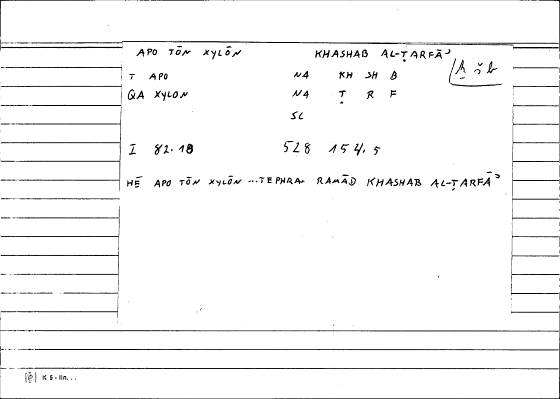 APO TŌN XYLŌN KHASHAB AL-ṬARFĀʾ
ḫšb
T APO N4 KH SH B
QA XYLON N4 Ṭ R F
SL
I 82.18 528 154.5
HĒ APO TŌN XYLŌN ...TEPHRA RAMĀD KHASHAB AL-ṬARFĀʾ
K 5 - lin. . .